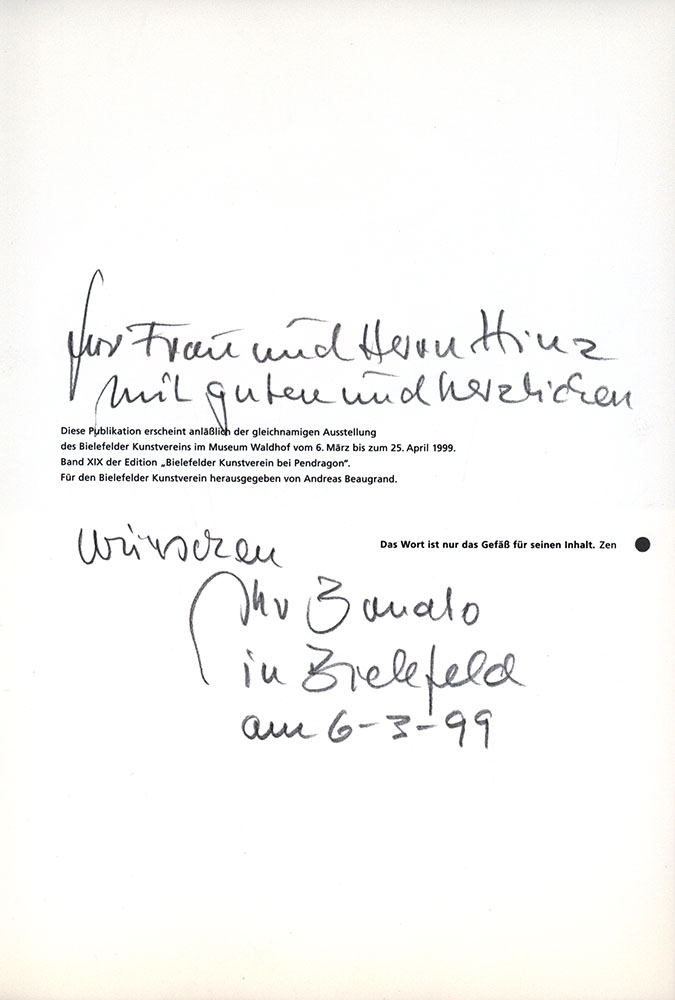 für Frau und Herrn Hinz
mit guten und herzlichen
Diese Publikation erscheint anläßlich der gleichnamigen Ausstellung
des Bielefelder Kunstvereins im Museum Waldhof vom 6. März bis zum 25. April 1999.
Band XIX der Edition „Bielefelder Kunstverein bei Pendragon“.
Für den Bielefelder Kunstverein herausgegeben von Andreas Beaugrand.
Wünschen
Das Wort ist nur das Gefäß für seinen Inhalt. Zen
Ihr
in Bielefeld
am 6-3-99